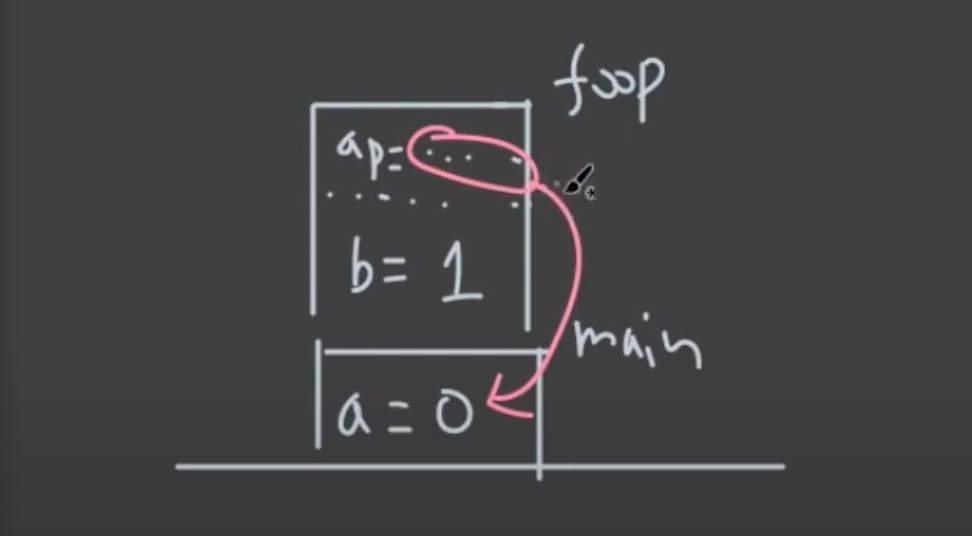 foop
ap=
b= 1
main
a = 0